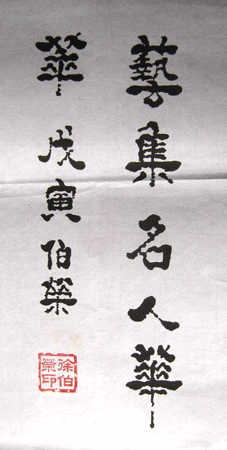 藝集名人華
華 戊寅 伯榮
徐伯
榮印